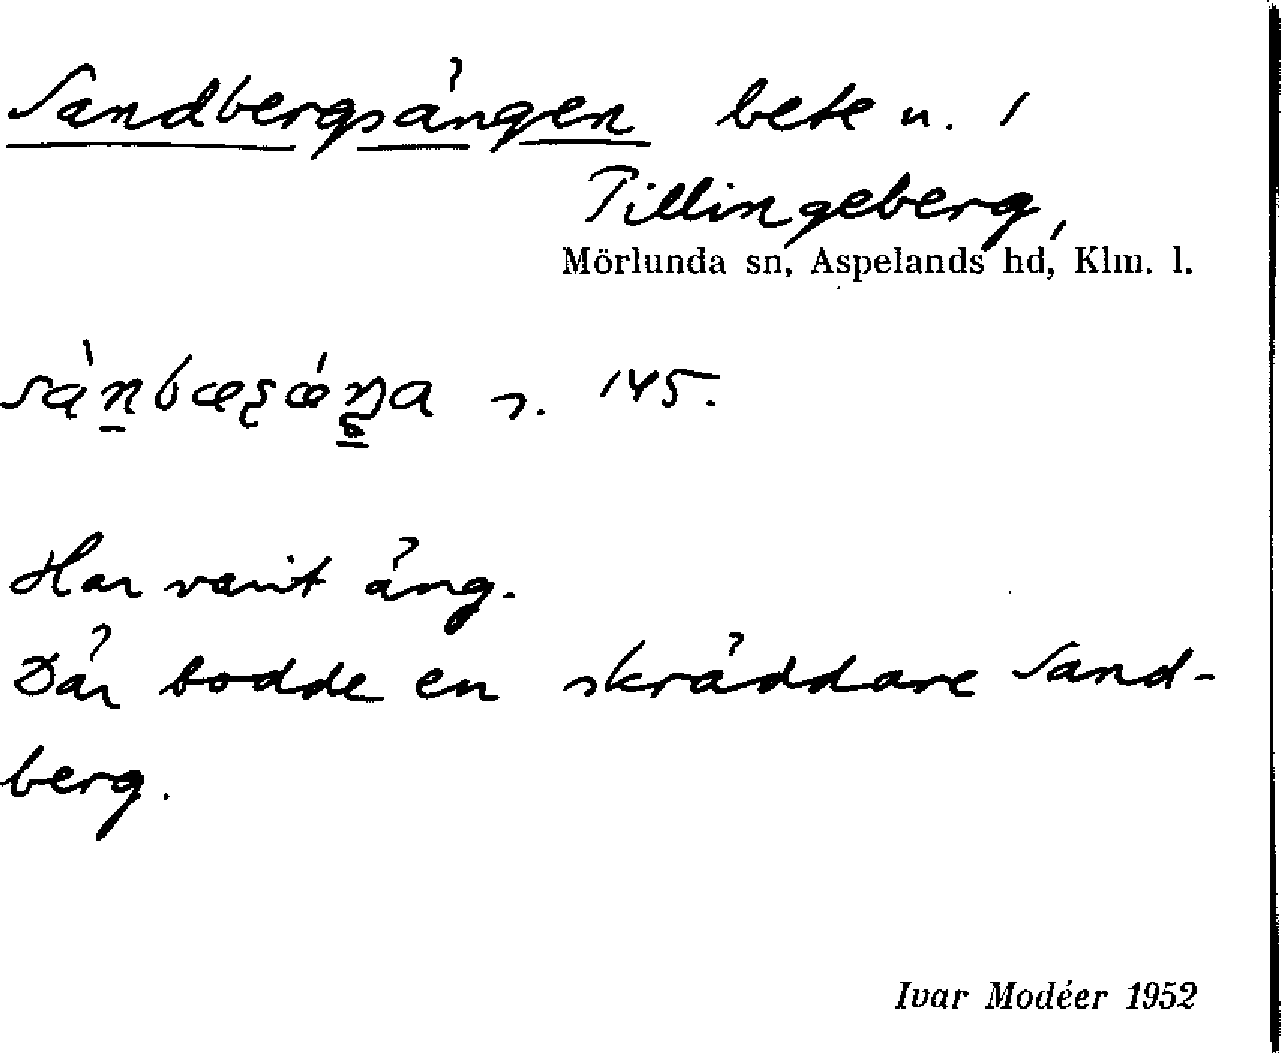 Sandbergsängen bete u. /
Tillingeberg,
Mörlunda sn, Aspelands hd, Klm. l.
s. 145.
Har varit äng.
Där bodde en skräddare Sand-
berg.
Ivar Modéer 1952